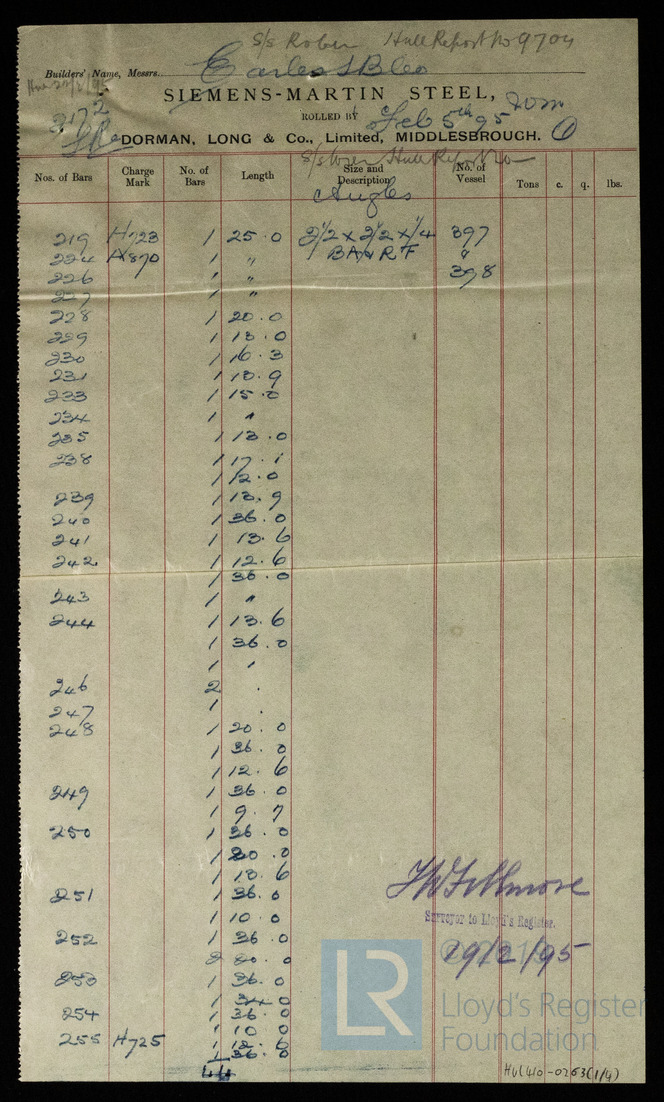 S/S Robin Hull Report No 9704
Builders' Name, Messrs. Earles S B & Co
SIEMENS-MARTIN STEEL,
372
ROLLED BY Feb 5th 95
DORMAN, LONG & Co., Limited, MIDDLESBROUGH.
Hull Report No
Nos. of Bars Charge Mark No. of Bars Length Size and Description No. of Vessel Tons c. q. lbs.
Angles
219 H723 1 25.0 2 1/2 x 2 1/2 x 1/4 397
224 H870 1 " "
226 1 " 398
227 1 "
228 1 20.0
229 1 13.0
230 1 16.3
231 1 13.9
233 1 15.0
234 1 "
235 1 13.0
238 1 17.1
1 12.0
239 1 13.9
240 1 36.0
241 1 13.6
242 1 12.6
1 36.0
243 1 "
244 1 13.6
1 36.0
1 "
246 2 "
247 1 "
248 1 20.0
1 36.0
1 12.6
249 1 36.0
1 9.7
250 1 36.0
1 20.0
1 13.6
251 1 36.0
1 10.0
252 1 36.0
2 20.0
253 1 36.0
1 34.0
254 1 36.0
1 10.0
255 H725 1 12.6
1 36.0
44
Surveyor to Lloyd's Register.
19/2/95
LR
Lloyd's Register
Foundation
HUL410-0263(1/4)